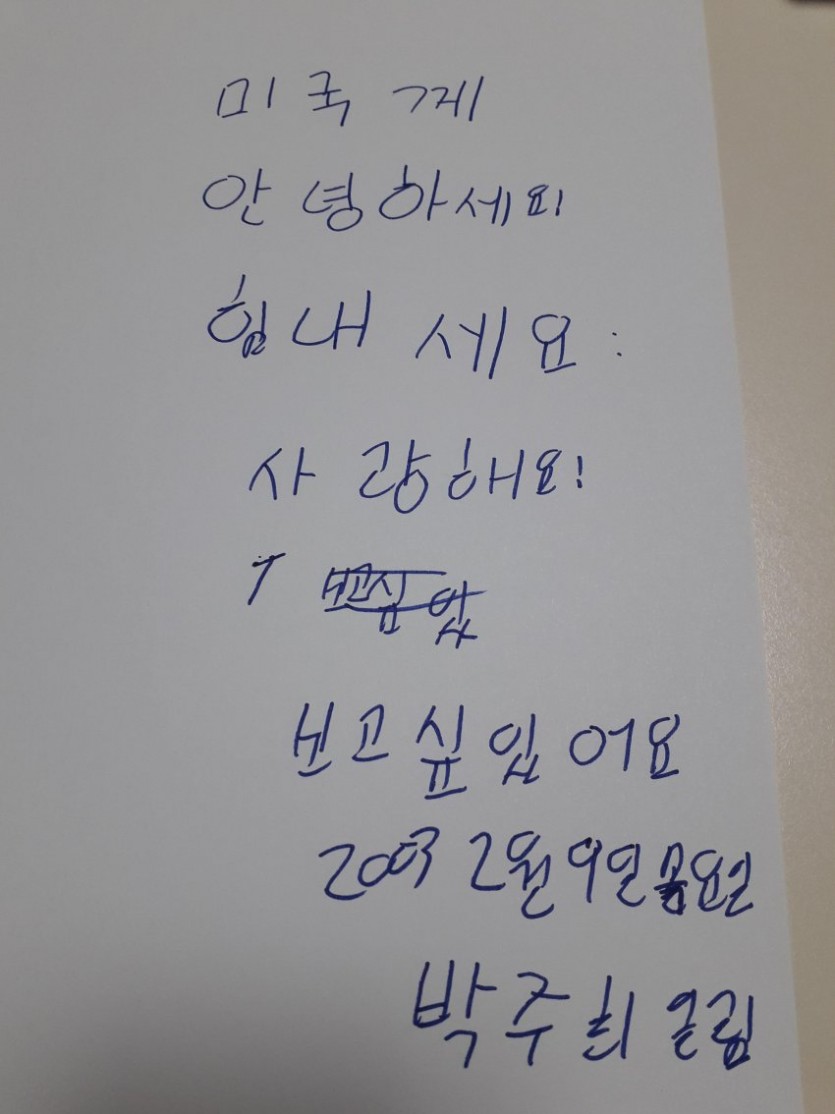 미국 께
안녕하세요!
힘내 세요
사랑해요!
보고싶
보고싶입어요
2003 2월 9일 요일
박주희 올림